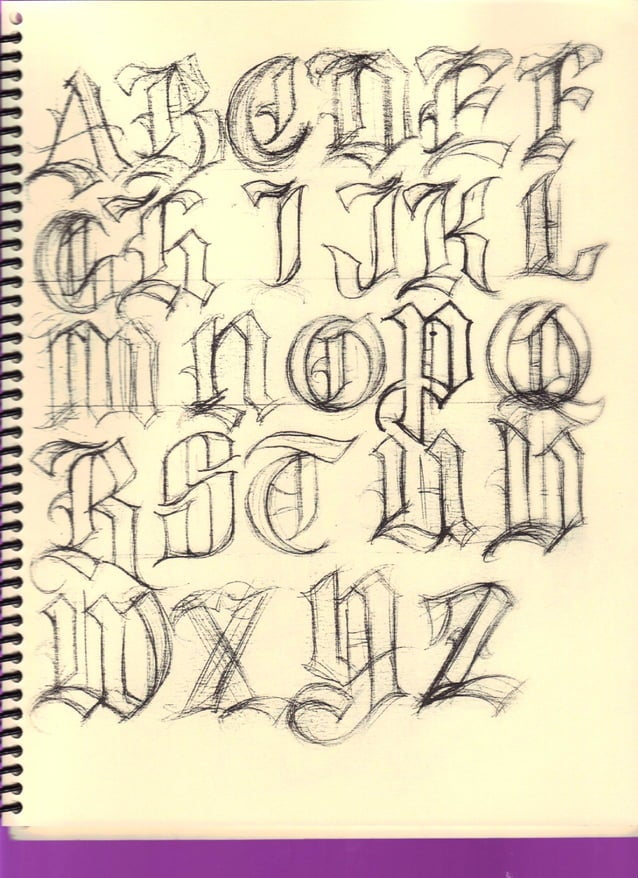 A B C D E F
G h I J K L
m n O P Q
R S T U V
W X Y Z